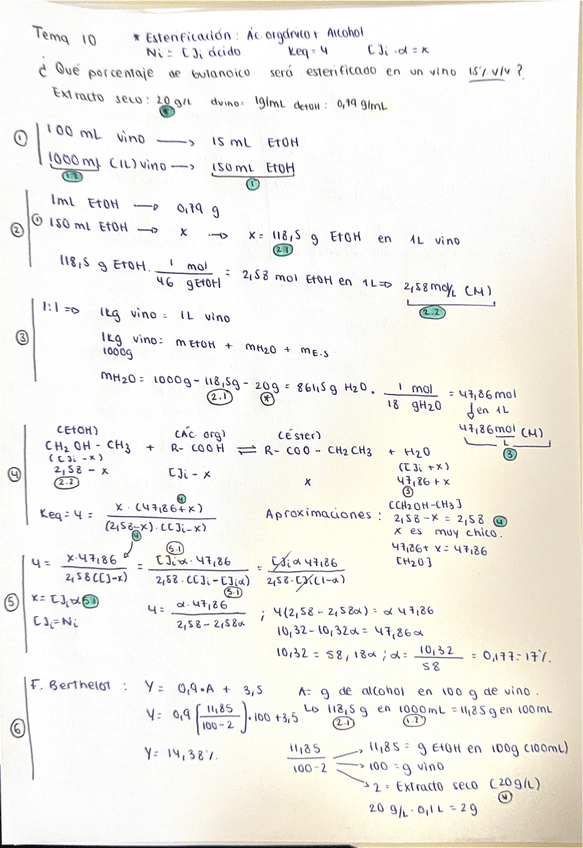 Tema 10 * Esterificación: Ác. orgánico + Alcohol
Ni = [ ]i ácido Keq = 4 [ ]i · α = x
¿ Qué porcentaje de butanoico será esterificado en un vino 15% v/v ?
Extracto seco: 20 g/L dvino: 1g/mL detOH: 0,79 g/mL
*
① 100 mL vino → 15 mL EtOH
1000 mL (1L) vino → 150 mL EtOH
1.2 1
② 1mL EtOH → 0,79 g
① 150 mL EtOH → x → x = 118,5 g EtOH en 1L vino
2.1
118,5 g EtOH · 1 mol / 46 gEtOH = 2,58 mol EtOH en 1L ⇒ 2,58 mol/L (M)
2.2
③ 1:1 ⇒ 1kg vino = 1L vino
1kg vino = mEtOH + mH2O + mE.S
1000g
mH2O = 1000g - 118,5g - 20g = 861,5g H2O · 1 mol / 18 gH2O = 47,86 mol
2.1 *
↓ en 1L
47,86 mol/L (M)
3
④ (EtOH) (Ác. org) (Éster)
CH2OH - CH3 + R-COOH ⇌ R-COO-CH2CH3 + H2O
([ ]i - x) ([ ]i + x)
2,58 - x [ ]i - x x 47,86 + x
2.2 3
Keq = 4 = x · (47,86 + x) / (2,58 - x) · ([ ]i - x)
Aproximaciones: [CH2OH-CH3]
2,58 - x = 2,58 4
x es muy chico.
47,86 + x = 47,86
[H2O]
⑤ 4 = x · 47,86 / 2,58 ([ ] - x) = [ ]i α · 47,86 / 2,58 · ([ ]i - [ ]i α) = [ ]i α 47,86 / 2,58 · [ ]i (1 - α)
5.1 5.1
x = [ ]i α 5.1
[ ]i = Ni
4 = α · 47,86 / 2,58 - 2,58α ; 4 (2,58 - 2,58α) = α 47,86
10,32 - 10,32α = 47,86α
10,32 = 58,18α ; α = 10,32 / 58 = 0,177 = 17%.
⑥ F. Berthelot : Y = 0,9 · A + 3,5 A = g de alcohol en 100 g de vino.
↳ 118,5 g en 1000mL = 11,85 g en 100mL
2.1 1.2
Y = 0,9 (11,85 / 100 - 2) · 100 + 3,5
Y = 14,38%.
11,85 / 100 - 2 → 11,85 = g EtOH en 100g (100mL)
→ 100 = g vino
→ 2 = Extracto seco (20 g/L)
*
20 g/L · 0,1 L = 2g